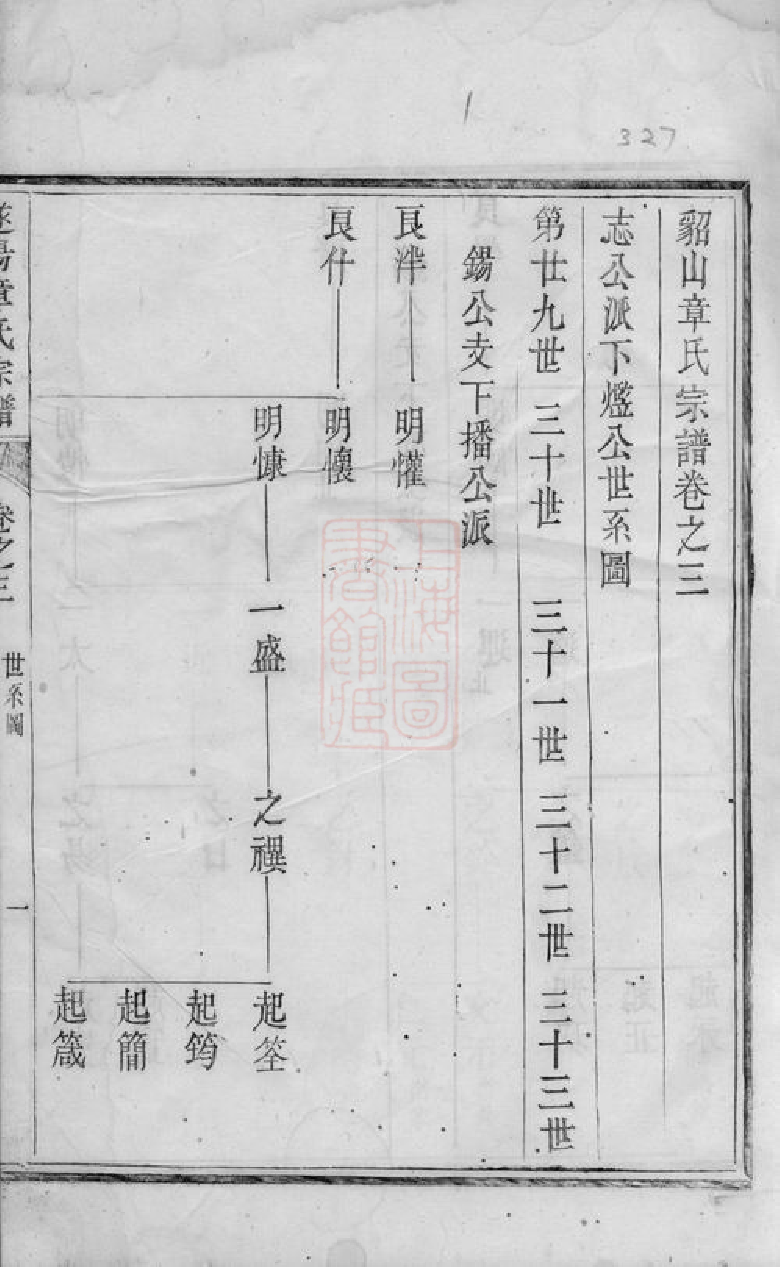 327
貂山章氏宗譜卷之三
志公派下爁公世系圖
第廿九世 三十世 三十一世 三十二世 三十三世
錫公支下播公派
良泮 明懽
良什 明懷
明慷 一盛 之禩 起筌
起筠
起簡
起箴
遂昜章氏宗譜 卷之三 世系圖 一
上海圖書館藏